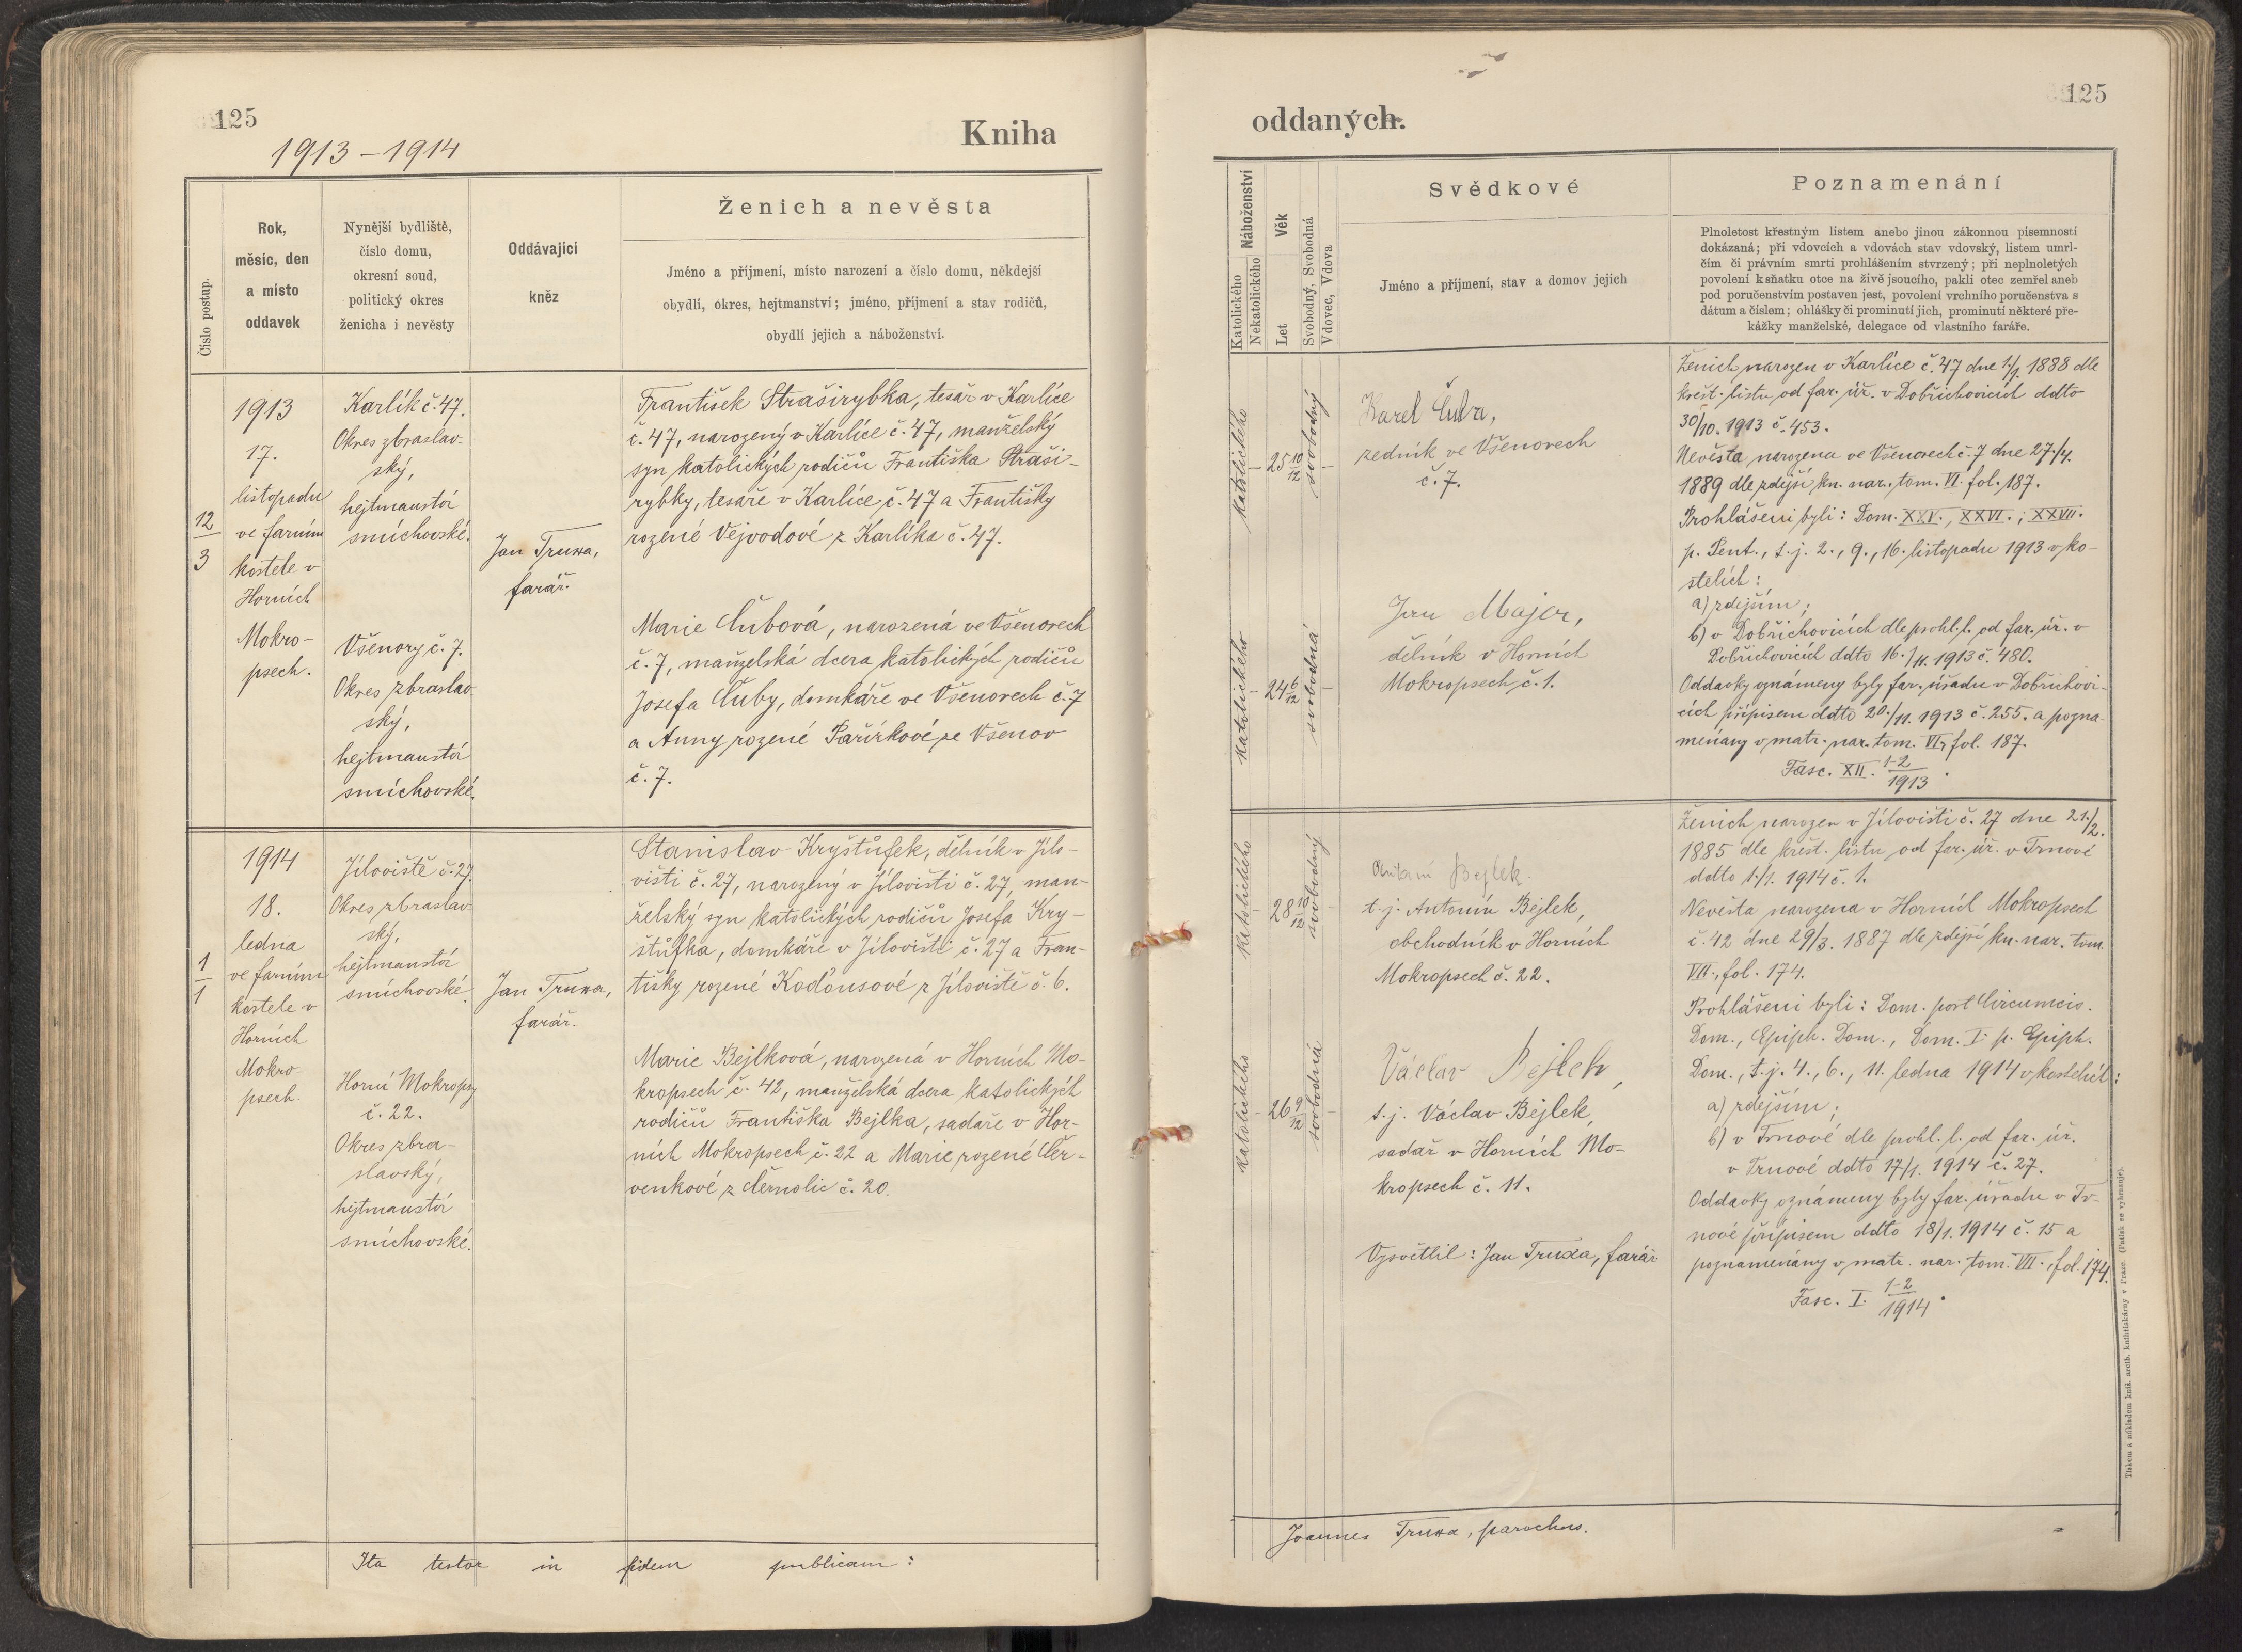 125
1913–1914
Kniha
Číslo postup.
Rok,
měsíc, den
a místo
oddavek
Nynější bydliště,
číslo domu,
okresní soud,
politický okres
ženicha i nevěsty
Oddávající
kněz
Ženich a nevěsta
Jméno a příjmení, místo narození a číslo domu, někdejší
obydlí, okres, hejtmanství; jméno, příjmení a stav rodičů,
obydlí jejich a náboženství.
12
3
1913
17.
listopadu
ve farním
kostele v
Horních
Mokro-
psech.
Karlík č. 47.
Okres zbraslav-
ský,
hejtmanství
smíchovské.
Všenory č. 7.
Okres zbraslav-
ský,
hejtmanství
smíchovské.
Jan Truxa,
farář.
František Straširybka, tesař v Karlíce
č. 47, narozený v Karlíce č. 47, manželský
syn katolických rodičů Františka Straši-
rybky, tesaře v Karlíce č. 47 a Františky
rozené Vejvodové z Karlíka č. 47.
Marie Čubová, narozená ve Všenorech
č. 7, manželská dcera katolických rodičů
Josefa Čuby, domkáře ve Všenorech č. 7
a Anny rozené Pařízkové ze Všenor
č. 7.
1
1
1914
18.
ledna
ve farním
kostele v
Horních
Mokro-
psech.
Jíloviště č. 27.
Okres zbraslav-
ský,
hejtmanství
smíchovské.
Horní Mokropsy
č. 22.
Okres zbra-
slavský,
hejtmanství
smíchovské.
Jan Truxa,
farář.
Stanislav Kryštůfek, dělník v Jílo-
višti č. 27, narozený v Jílovišti č. 27, man-
želský syn katolických rodičů Josefa Kry-
štůfka, domkáře v Jílovišti č. 27 a Fran-
tišky rozené Kodousové z Jíloviště č. 6.
Marie Bejlková, narozená v Horních Mo-
kropsech č. 42, manželská dcera katolických
rodičů Františka Bejlka, sadaře v Hor-
ních Mokropsech č. 22 a Marie rozené Čer-
venkové z Černolic č. 20.
Ita testor in fidem publicam:
125
oddaných.
Náboženství
Katolického
Nekatolického
Věk
Let
Svobodný, Svobodná
Vdovec, Vdova
Svědkové
Jméno a příjmení, stav a domov jejich
Poznamenání
Plnoletost křestným listem anebo jinou zákonnou písemností
dokázaná; při vdovcích a vdovách stav vdovský, listem umrl-
čím či právním smrti prohlášením stvrzený; při neplnoletých
povolení k sňatku otce na živě jsoucího, pakli otec zemřel aneb
pod poručenstvím postaven jest, povolení vrchního poručenstva s
dátum a číslem; ohlášky či prominutí jich, prominutí některé pře-
kážky manželské, delegace od vlastního faráře.
katolického
25 10/12
svobodný
Karel Čuba,
zedník ve Všenorech
č. 7.
katolického
24 6/12
svobodná
Jan Major,
dělník v Horních
Mokropsech č. 1.
Ženich narozen v Karlíce č. 47 dne 1/1. 1888 dle
křest. listu od far. úř. v Dobřichovicích ddto
30/10. 1913 č. 453.
Nevěsta narozena ve Všenorech č. 7 dne 27./4.
1889 dle zdejší kn. nar., tom. VI. fol. 187.
Prohlášeni byli: Dom. XXV., XXVI., XXVII.
p. Pent., t. j. 2., 9., 16. listopadu 1913 v ko-
stelích:
a) zdejším;
b) v Dobřichovicích dle prohl. l. od far. úř. v
Dobřichovicích ddto 16./11. 1913 č. 480.
Oddavky oznámeny byly far. úřadu v Dobřichovi-
cích přípisem ddto 20./11. 1913 č. 255. a pozna-
menány v matr. nar. tom. VI., fol. 187.
Fasc. XII. 1-2/1913.
katolického
28 10/12
svobodný
Antonín Bejlek.
t. j. Antonín Bejlek,
obchodník v Horních
Mokropsech č. 22.
katolického
26 9/12
svobodná
Václav Bejlek,
t. j. Václav Bejlek,
sadař v Horních Mo-
kropsech č. 11.
Vysvětlil: Jan Truxa, farář
Ženich narozen v Jílovišti č. 27 dne 21./2.
1885 dle křest. listu od far. úř. v Trnové
ddto 1./1. 1914 č. 1.
Nevěsta narozena v Horních Mokropsech
č. 42 dne 29/3. 1887 dle zdejší kn. nar. tom.
VII., fol. 174.
Prohlášeni byli: Dom. post Circumcis.
Dom., Epiph. Dom., Dom. I. p. Epiph.
Dom., t. j. 4., 6., 11. ledna 1914 v kostelích:
a) zdejším;
b) v Trnové dle prohl. l. od far. úř.
v Trnové ddto 17/1. 1914 č. 27.
Oddavky oznámeny byly far. úřadu v Tr-
nové přípisem ddto 18/1. 1914 č. 15 a
poznamenány v matr. nar. tom. VII., fol. 174.
Fasc. I. 1-2/1914.
Joannes Truxa, parochus.
Tiskem a nákladem kníž. arcib. knihtiskárny v Praze. (Patisk se vyhrazuje).